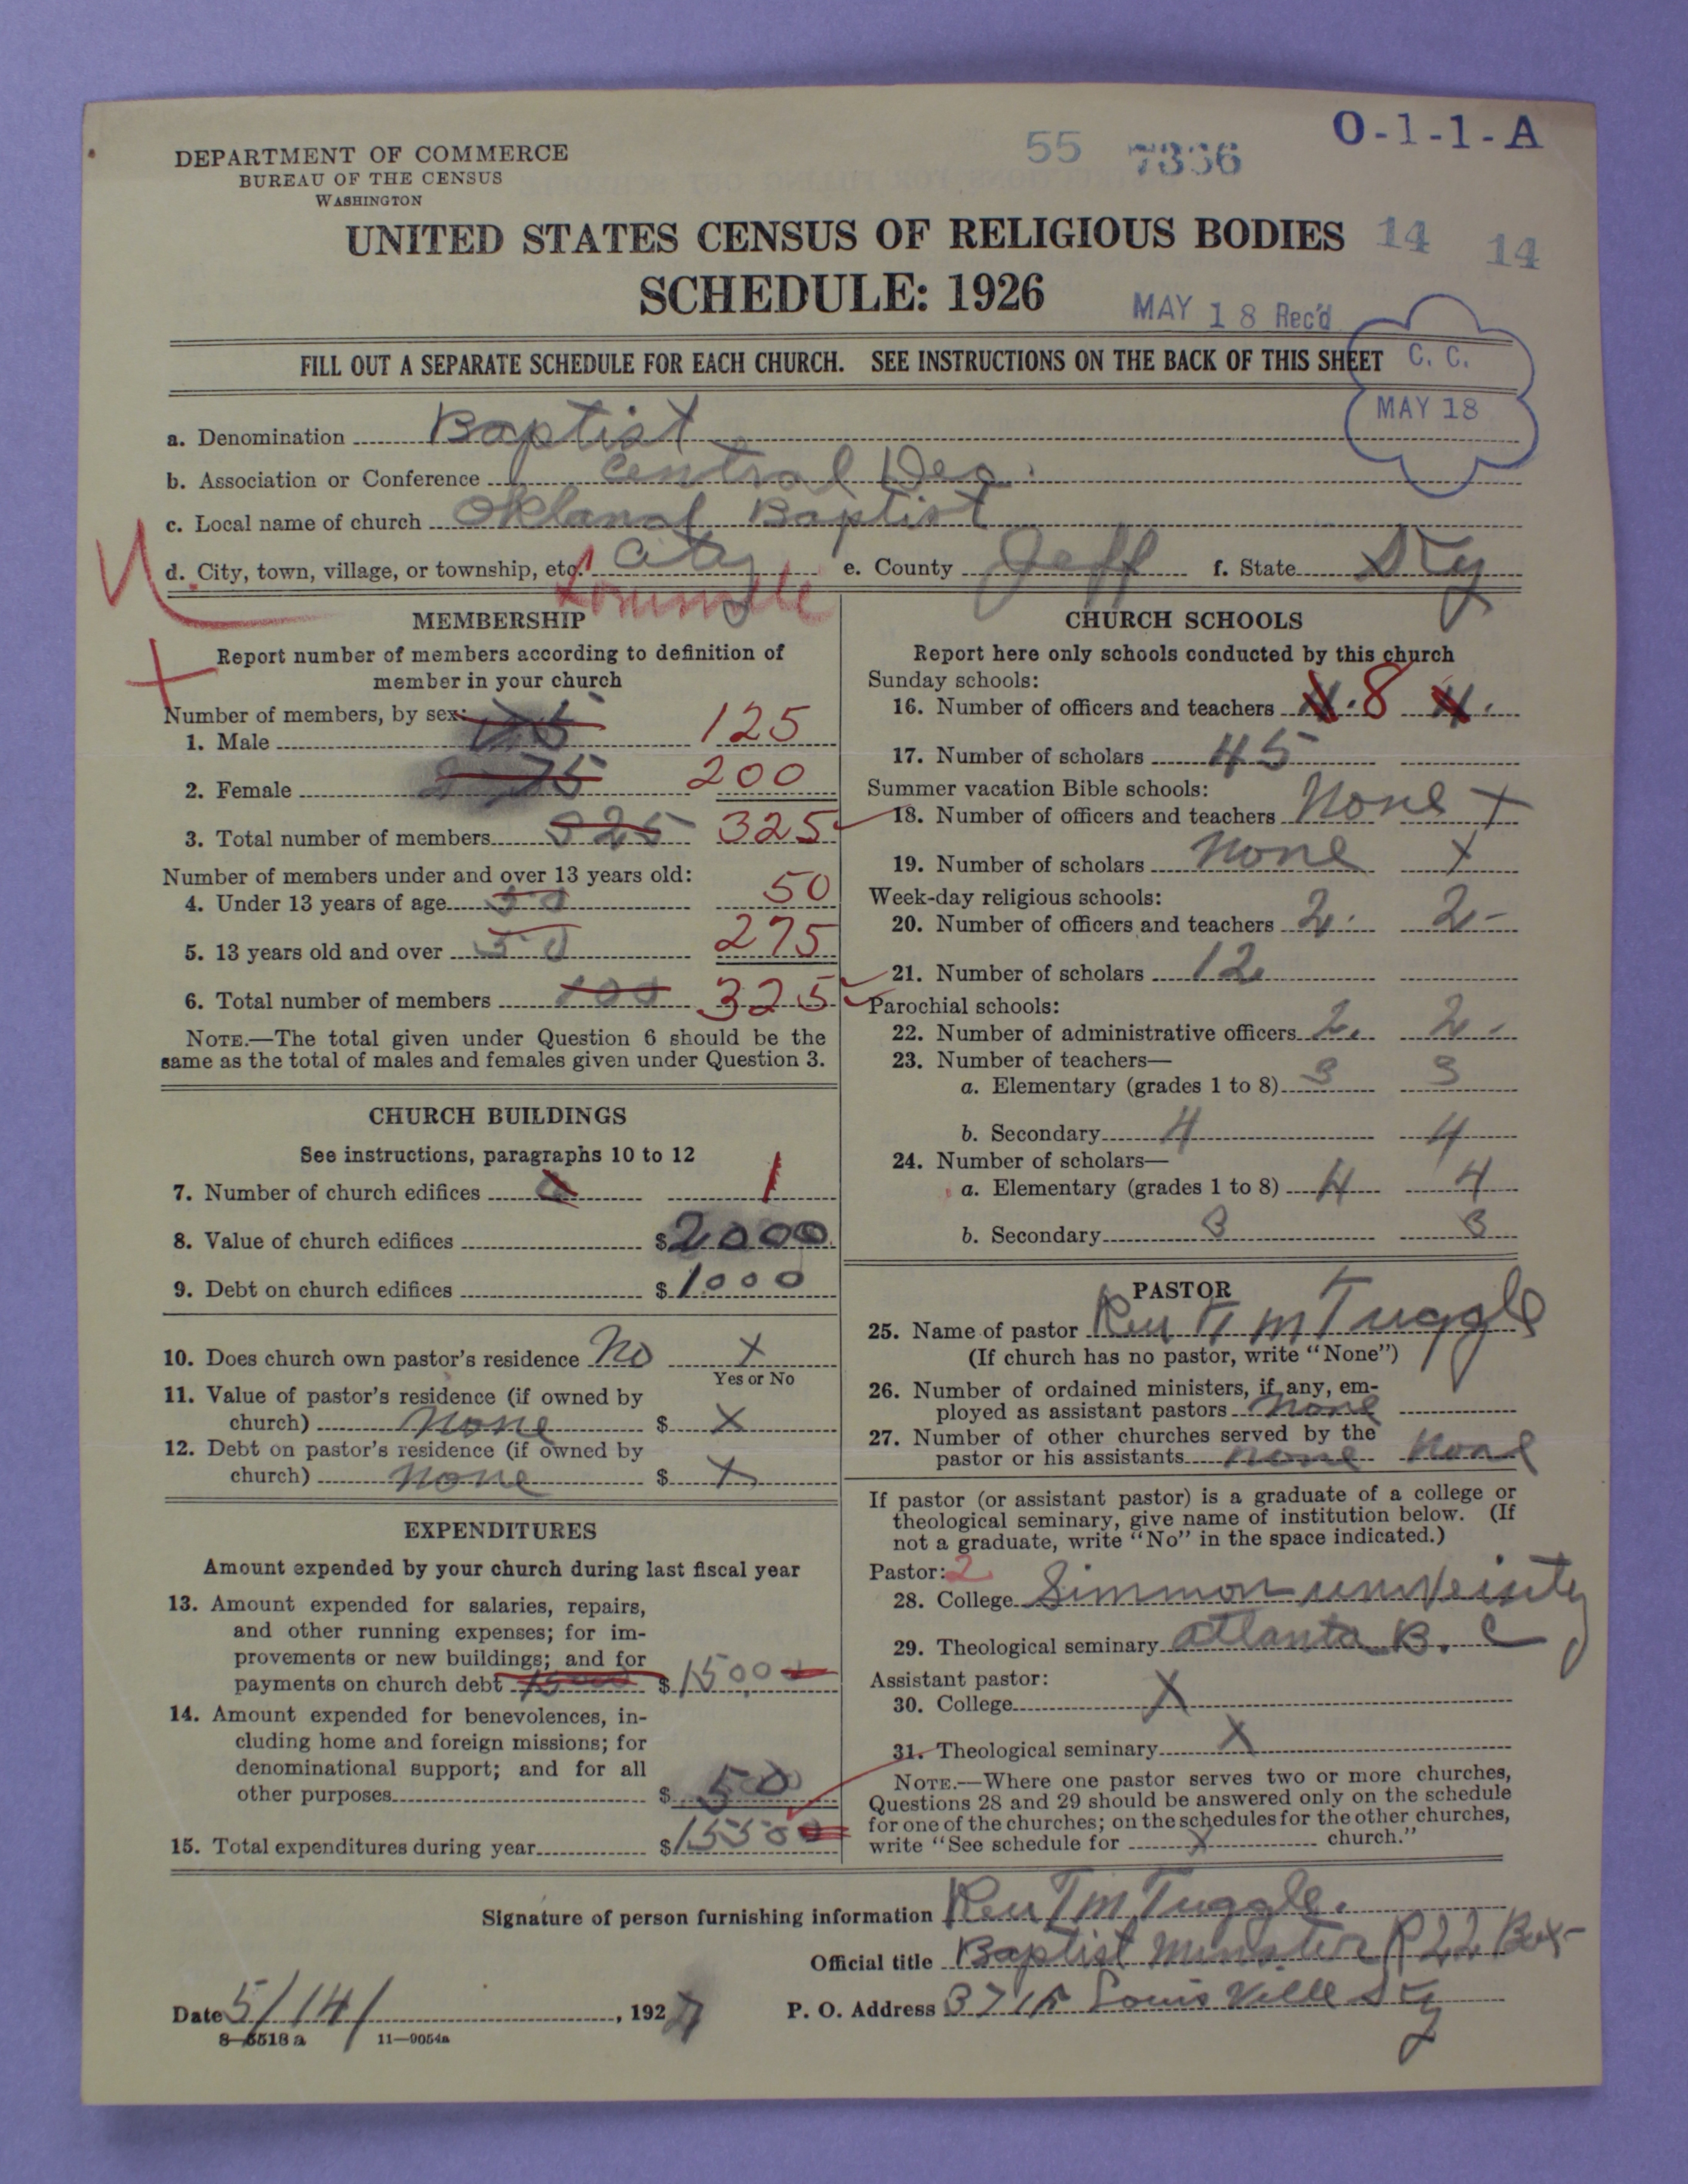 O-1-1-A
DEPARTMENT OF COMMERCE
BUREAU OF THE CENSUS
WASHINGTON
55 7336
UNITED STATES CENSUS OF RELIGIOUS BODIES 14 14
SCHEDULE: 1926
MAY 18 Rec'd
FILL OUT A SEPARATE SCHEDULE FOR EACH CHURCH. SEE INSTRUCTIONS ON THE BACK OF THIS SHEET
C. C.
MAY 18
a. Denomination Baptist
b. Association or Conference Central Des.
c. Local name of church Baptist
d. City, town, village, or township, etc. City e. County Jeff f. State Ky
Louisville
MEMBERSHIP
Report number of members according to definition of
member in your church
Number of members, by sex:
1. Male 125
2. Female 75 200
3. Total number of members 325 325
Number of members under and over 13 years old:
4. Under 13 years of age 50 50
5. 13 years old and over 50 275
6. Total number of members 100 325
NOTE.—The total given under Question 6 should be the
same as the total of males and females given under Question 3.
CHURCH BUILDINGS
See instructions, paragraphs 10 to 12
7. Number of church edifices 1
8. Value of church edifices $2000
9. Debt on church edifices $1000
10. Does church own pastor's residence No X
Yes or No
11. Value of pastor's residence (if owned by
church) none $ X
12. Debt on pastor's residence (if owned by
church) none $ X
EXPENDITURES
Amount expended by your church during last fiscal year
13. Amount expended for salaries, repairs,
and other running expenses; for im-
provements or new buildings; and for
payments on church debt $1500
14. Amount expended for benevolences, in-
cluding home and foreign missions; for
denominational support; and for all
other purposes $ 50
15. Total expenditures during year $1550
CHURCH SCHOOLS
Report here only schools conducted by this church
Sunday schools:
16. Number of officers and teachers 4. 8 4.
17. Number of scholars 45
Summer vacation Bible schools:
18. Number of officers and teachers None X
19. Number of scholars none X
Week-day religious schools:
20. Number of officers and teachers 2. 2-
21. Number of scholars 12
Parochial schools:
22. Number of administrative officers 2. 2-
23. Number of teachers—
a. Elementary (grades 1 to 8) 3 3
b. Secondary 4 4
24. Number of scholars—
a. Elementary (grades 1 to 8) 4 4
b. Secondary 3 3
PASTOR
25. Name of pastor Rev T M Tuggle
(If church has no pastor, write "None")
26. Number of ordained ministers, if any, em-
ployed as assistant pastors none
27. Number of other churches served by the
pastor or his assistants none none
If pastor (or assistant pastor) is a graduate of a college or
theological seminary, give name of institution below. (If
not a graduate, write "No" in the space indicated.)
Pastor: 2
28. College Simmon
29. Theological seminary atlanta B. C
Assistant pastor:
30. College X
31. Theological seminary X
NOTE.—Where one pastor serves two or more churches,
Questions 28 and 29 should be answered only on the schedule
for one of the churches; on the schedules for the other churches,
write "See schedule for X church."
Signature of person furnishing information Rev T M Tuggle.
Official title Baptist Minister R 22 Box
Date 5/14/, 1927 P. O. Address Louisville Ky
8-5518 a 11—9054a